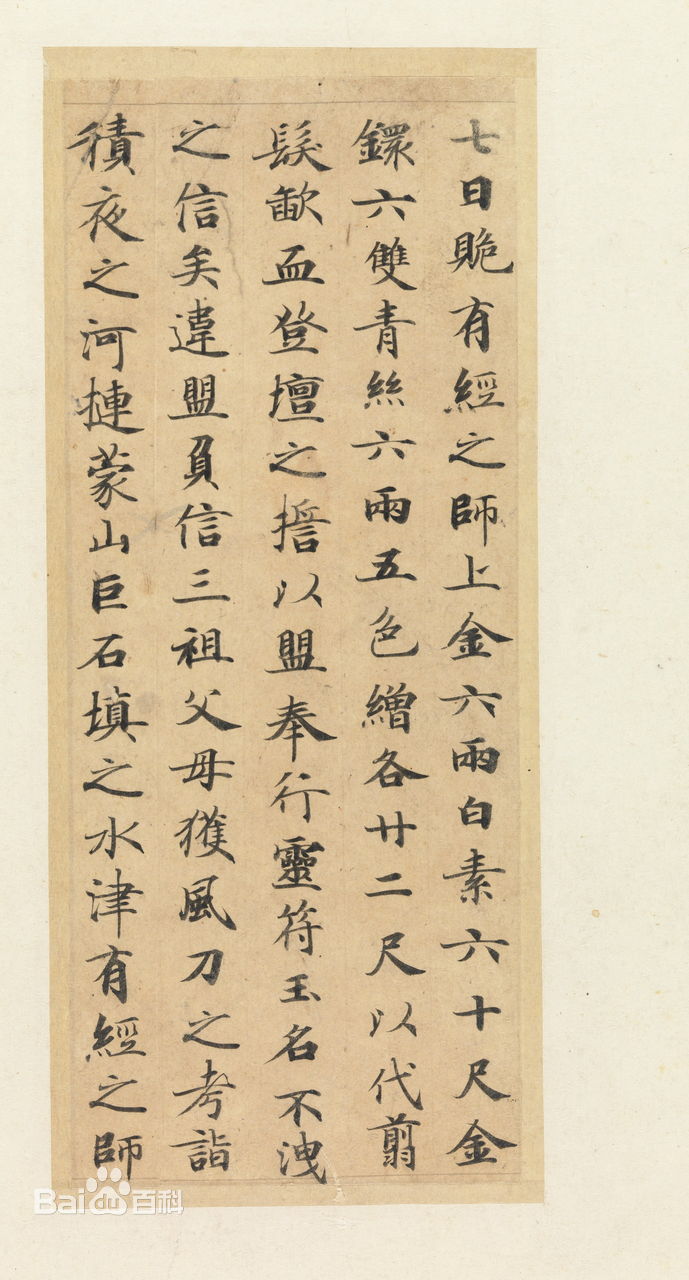 七日賍有經之師上金六兩白素六十尺金
鐶六雙青絲六兩五色繒各廿二尺以代翦
髮歃血登壇之擔以盟奉行靈符玉名不洩
之信矣違盟負信三祖父母獲風刀之考詣
積夜之河摙蒙山巨石填之水津有經之師
Baidu百科